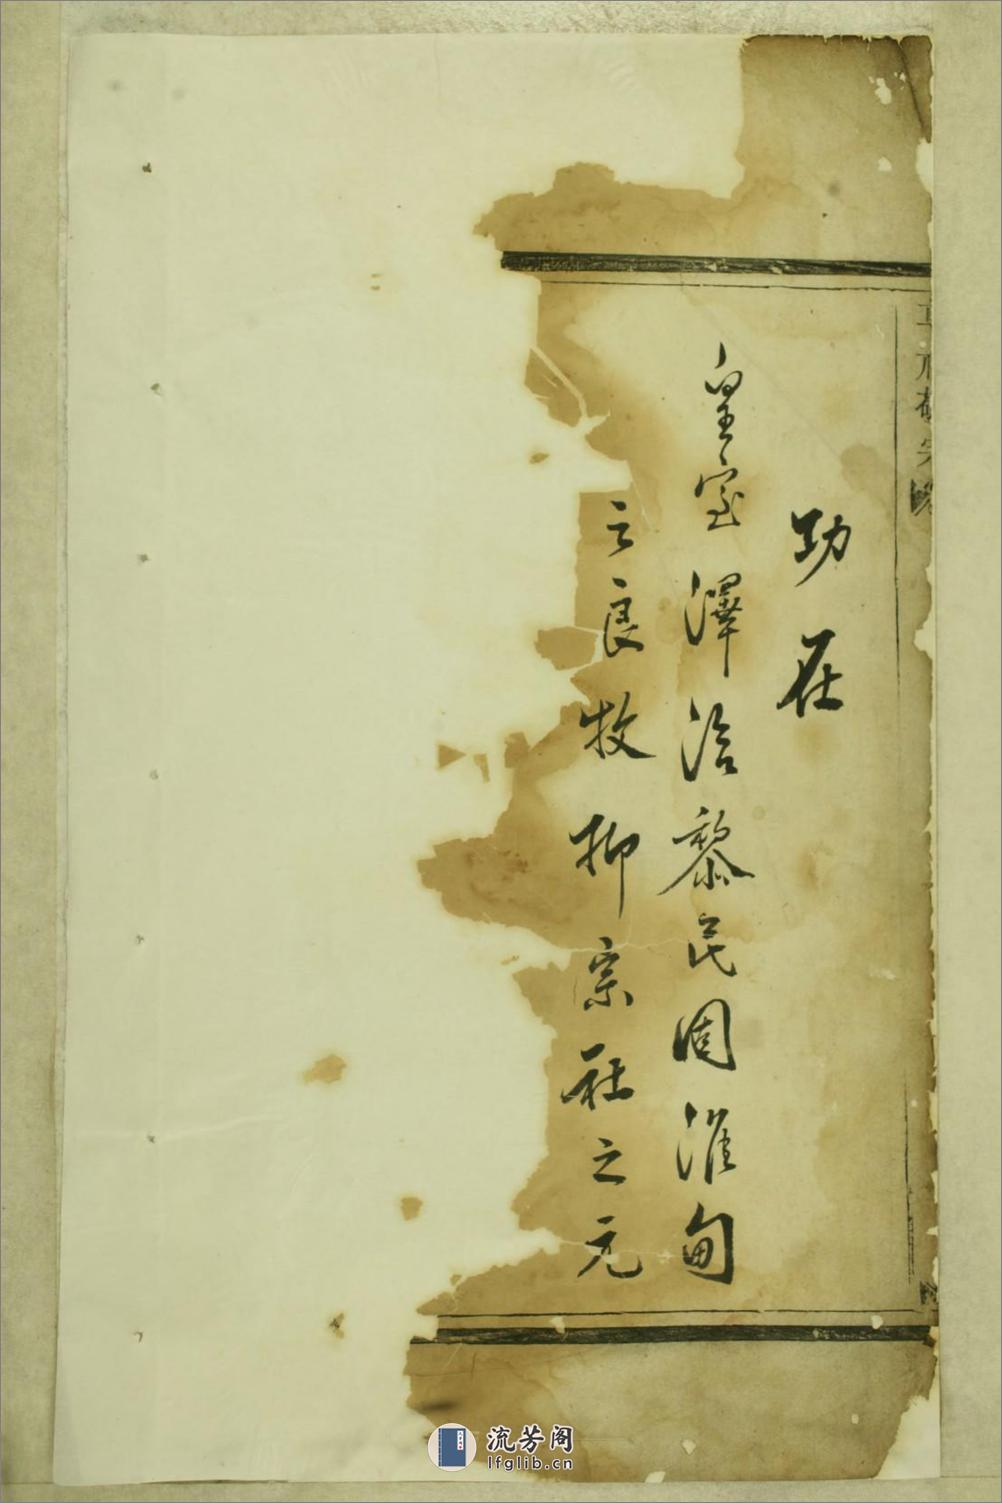 功在
皇室澤洽黎民固淮甸
之良牧抑宗社之元
流芳阁
lfglib.cn